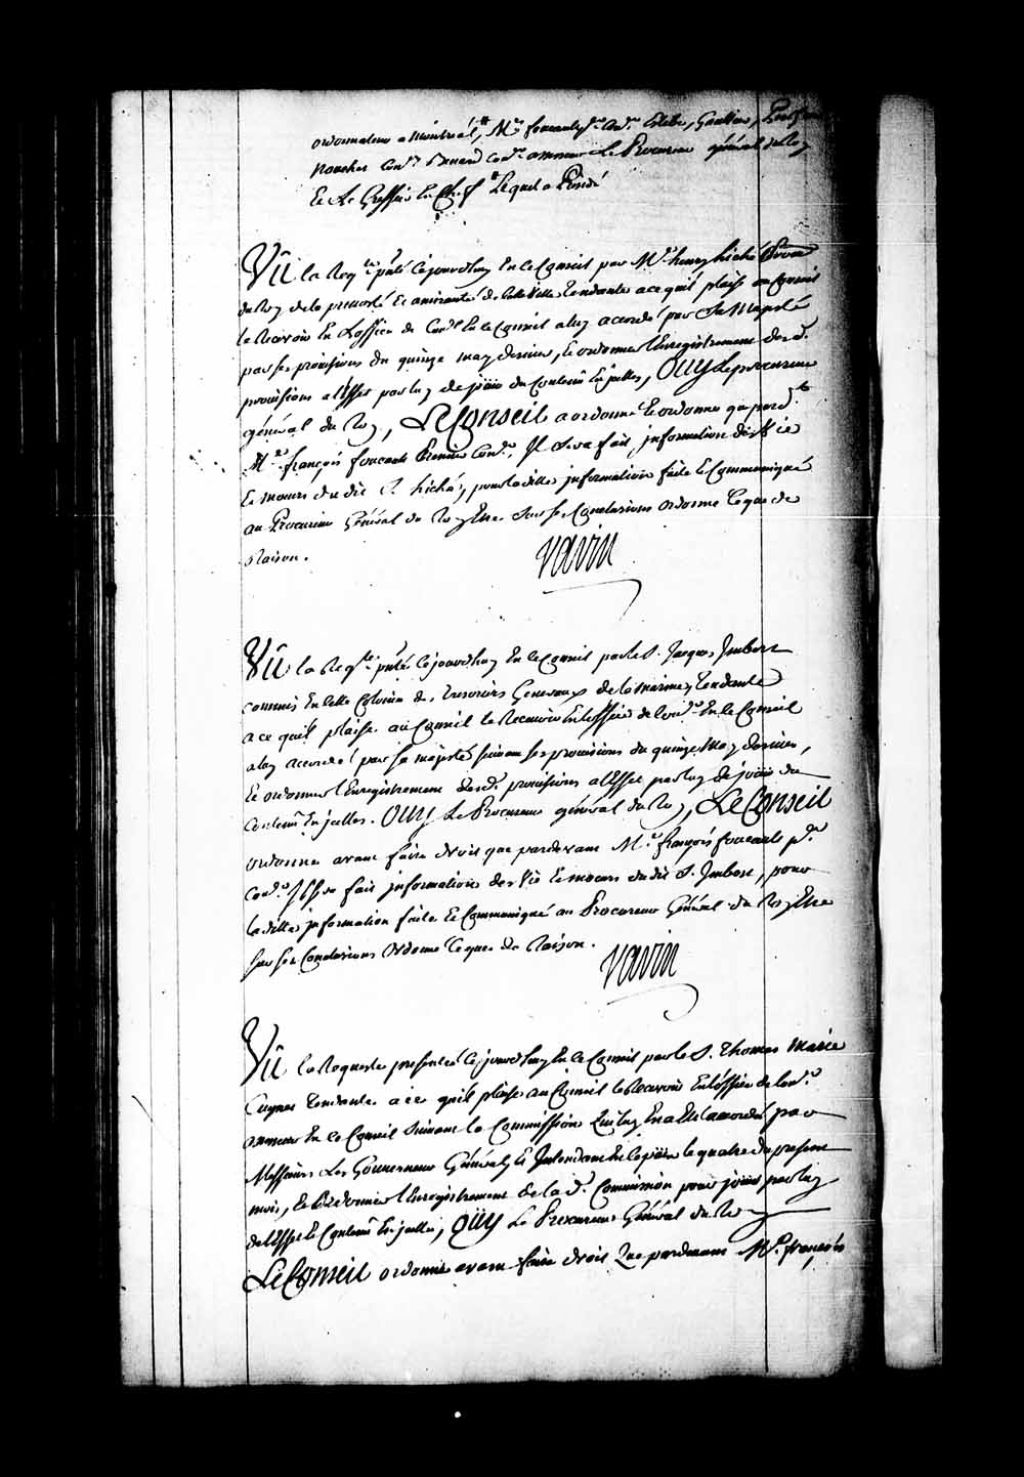 ordonnateur a Montréal, Mrs foucault pr Conr Estebe, Gaultier,
Nouchet Conrs Benard Conr assesseur Le Procureur général du Roy
Et Le Greffier En Chef
Vû la Reqte pñté cejourdhuy En ce Conseil par Me henry hiché
du Roy de la prevosté Et amirauté de cette Ville Tendante a ce qu'il plaise au Conseil
le Recevoir En Loffice de Conr En le Conseil a luy accordé par Sa Majesté
par ses provisions du quinze may dernier, et ordonner l'Enregistrement desd.
provisions a l'effet par luy de joüir du Contenû En jcelles, Ouy Le procureur
général du Roy, Le Conseil a ordonné Et ordonne que pard
Me françois foucault Premier Conr, Il sera fait, jnformation des Vie
Et mœurs du dit S. hiché, pour la ditte jnformation faite Et Communiqué
au Procureur Général du Roy Etre sur ses Conclusions ordonné Ce que de
Raison.
varin
Vû la Reqte pñtée cejourdhuy En ce Conseil par le S. Jacques Jmbert
commis En cette Colonie des Tresoriers Generaux de la marine, Tendante
a ce quil plaise au Conseil le Recevoir En Loffice de Conr En le Conseil
a luy accordé par sa majesté suivant ses provisions du quinze May dernier,
Et ordonner l'Enregistrement desd. provisions a l'Effet par luy de joüir du
Contenû En jcelles. Ouy Le Procureur général du Roy, Le Conseil
ordonne avant faire droit que pardevant Me françois foucault pr
Conr Il sera fait jnformation des Vie Et mœurs du dit S. Jmbert, pour
la ditte jnformation faite Et Communiqué au Procureur Général du Roy Etre
sur ses Conclusions Ordonné Ce que de Raison.
varin
Vû la Requeste presentée cejourdhuy En ce Conseil par le S. Thomas Marie
Cugnet Tendante a ce quil plaise au Conseil le Recevoir En l'office de Conr
assesseur En ce Conseil suivant la Commission qui luy En a Esté accordée par
Messieurs Les Gouverneur Général, Et Jntendant En ce païs le quatre du present
mois, Et Ordonner l'Enregistrement de lad. Commission pour joüir par luy
de l'Effet Et Contenû En jcelle, Oüy Le Procureur Général du Roy
Le Conseil ordonne avant faire droit Que pardevant Me françois